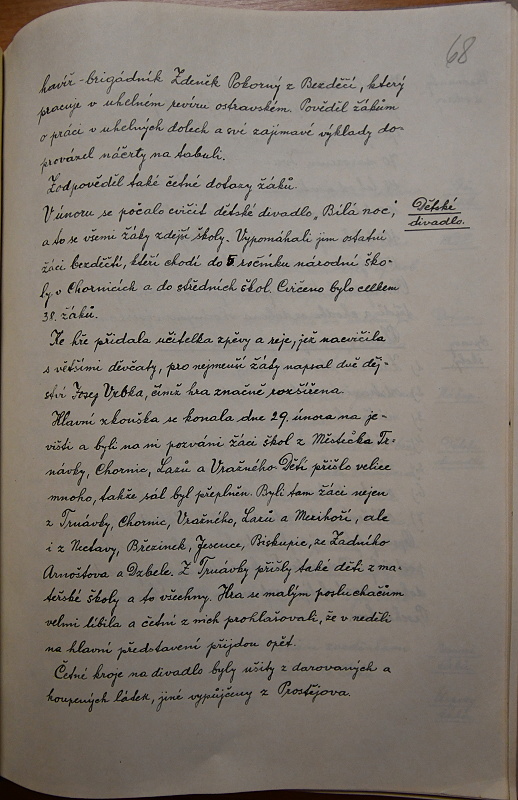 68
havíř-brigádník Zdeněk Pokorný z Bezděčí, který
pracuje v uhelném revíru ostravském. Pověděl žákům
o práci v uhelných dolech a své zajímavé výklady do-
provázel náčrty na tabuli.
Zodpověděl také četné dotazy žáků.
V únoru se počalo cvičit dětské divadlo „Bílá noc",
Dětské
divadlo.
a to se všemi žáky zdejší školy. Vypomáhali jim ostatní
žáci bezděčtí, kteří chodí do 5 ročníku národní ško-
ly v Chornicích a do středních škol. Cvičeno bylo celkem
38 žáků.
Ke hře přidala učitelka zpěvy a reje, jež nacvičila
s většími děvčaty, pro nejmenší žáky napsal dvě děj-
ství Josef Vrbka, čímž hra značně rozšířena.
Hlavní zkouška se konala dne 29. února na je-
višti a byli na ni pozváni žáci škol z Městečka Tr-
návky, Chornic, Lazů a Vražného. Dětí přišlo velice
mnoho, takže sál byl přeplněn. Byli tam žáci nejen
z Trnávky, Chornic, Vražného, Lazů a Meziboří, ale
i z Nectavy, Březinek, Jesence, Biskupic, ze Zadního
Arnoštova a Dzbele. Z Trnávky přišly také děti z ma-
teřské školy a to všechny. Hra se malým posluchačům
velmi líbila a četní z nich prohlašovali, že v neděli
na hlavní představení přijdou opět.
Četné kroje na divadlo byly ušity z darovaných a
koupených látek, jiné vypůjčeny z Prostějova.